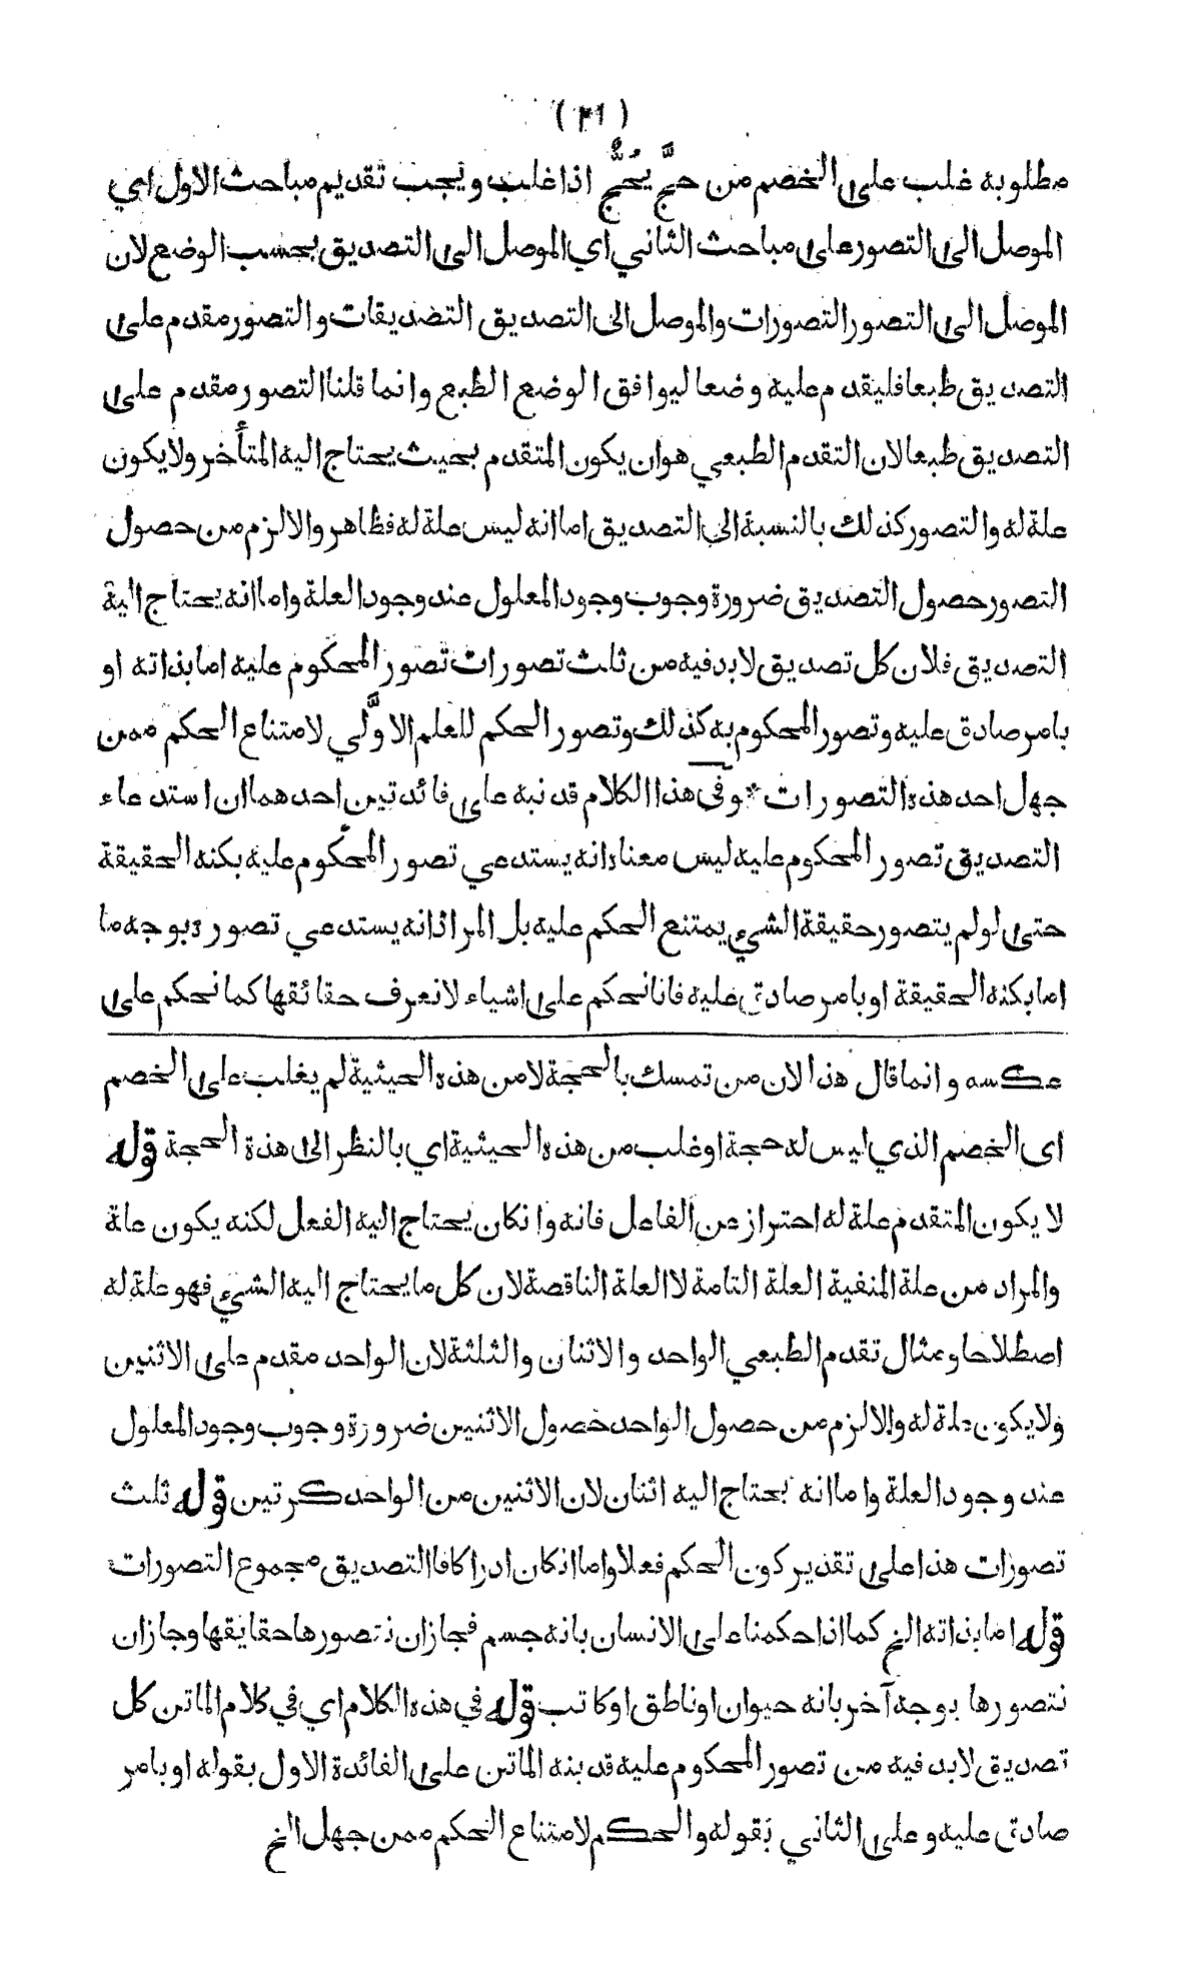 ( ٢٦ )
مطلوبه غلب على الخصم من حجَّ يحُجُّ اذا غلب ويجب تقديم مباحث الاول اي
الموصل الى التصور على مباحث الثاني اي الموصل الى التصديق بحسب الوضع لان
الموصل الى التصور التصورات والموصل الى التصديق التصديقات والتصور مقدم على
التصديق طبعا فليقدم عليه وضعا ليوافق الوضع الطبع وانما قلنا التصور مقدم على
التصديق طبعا لان التقدم الطبعي هو ان يكون المتقدم بحيث يحتاج اليه المتأخر ولا يكون
علة له والتصور كذلك بالنسبة الى التصديق اما انه ليس علة له فظاهر والا لزم من حصول
التصور حصول التصديق ضرورة وجوب وجود المعلول عند وجود العلة واما انه يحتاج الية
التصديق فلان كل تصديق لا بد فيه من ثلث تصورات تصور المحكوم عليه اما بذاته او
بامر صادق عليه وتصور المحكوم به كذلك وتصور الحكم للعلم الاوَّلي لامتناع الحكم ممن
جهل احد هذه التصورات * وفي هذا الكلام قد نبه على فائدتين احدهما ان استدعاء
التصديق تصور المحكوم عليه ليس معناه انه يستدعي تصور المحكوم عليه بكنه الحقيقة
حتى لو لم يتصور حقيقة الشيء يمتنع الحكم عليه بل المراد انه يستدعي تصوره بوجه ما
اما بكنه الحقيقة او بامر صادق عليه فانا نحكم على اشياء لا نعرف حقائقها كما نحكم على
عكسه وانما قال هذا لان من تمسك بالحجة لا من هذه الحيثية لم يغلب على الخصم
اى الخصم الذي ليس له حجة او غلب من هذه الحيثية اي بالنظر الى هذة الحجة قوله
لا يكون المتقدم علة له احتراز عن الفاعل فانه وان كان يحتاج اليه الفعل لكنه يكون علة
والمراد من علة المنفية العلة التامة لا العلة الناقصة لان كل ما يحتاج اليه الشيء فهو علة له
اصطلاحا ومثال تقدم الطبعي الواحد والاثنان والثلثة لان الواحد مقدم على الاثنين
ولا يكون علة له والا لزم من حصول الواحد حصول الاثنين ضرورة وجوب وجود المعلول
عند وجود العلة واما انه يحتاج اليه اثنان لان الاثنين من الواحد كرتين قوله ثلث
تصورات هذا على تقدير كون الحكم فعلا واما انكان ادراكا فالتصديق مجموع التصورات
قوله اما بذاته الخ كما اذا حكمنا على الانسان بانه جسم فجاز ان نتصورها حقايقها وجاز ان
نتصورها بوجه آخر بانه حيوان او ناطق او كاتب قوله في هذه الكلام اي في كلام الماتن كل
تصديق لابد فيه من تصور المحكوم عليه قد بنه الماتن على الفائدة الاول بقوله او بامر
صادق عليه وعلى الثاني بقوله والحكم لامتناع الحكم ممن جهل الخ